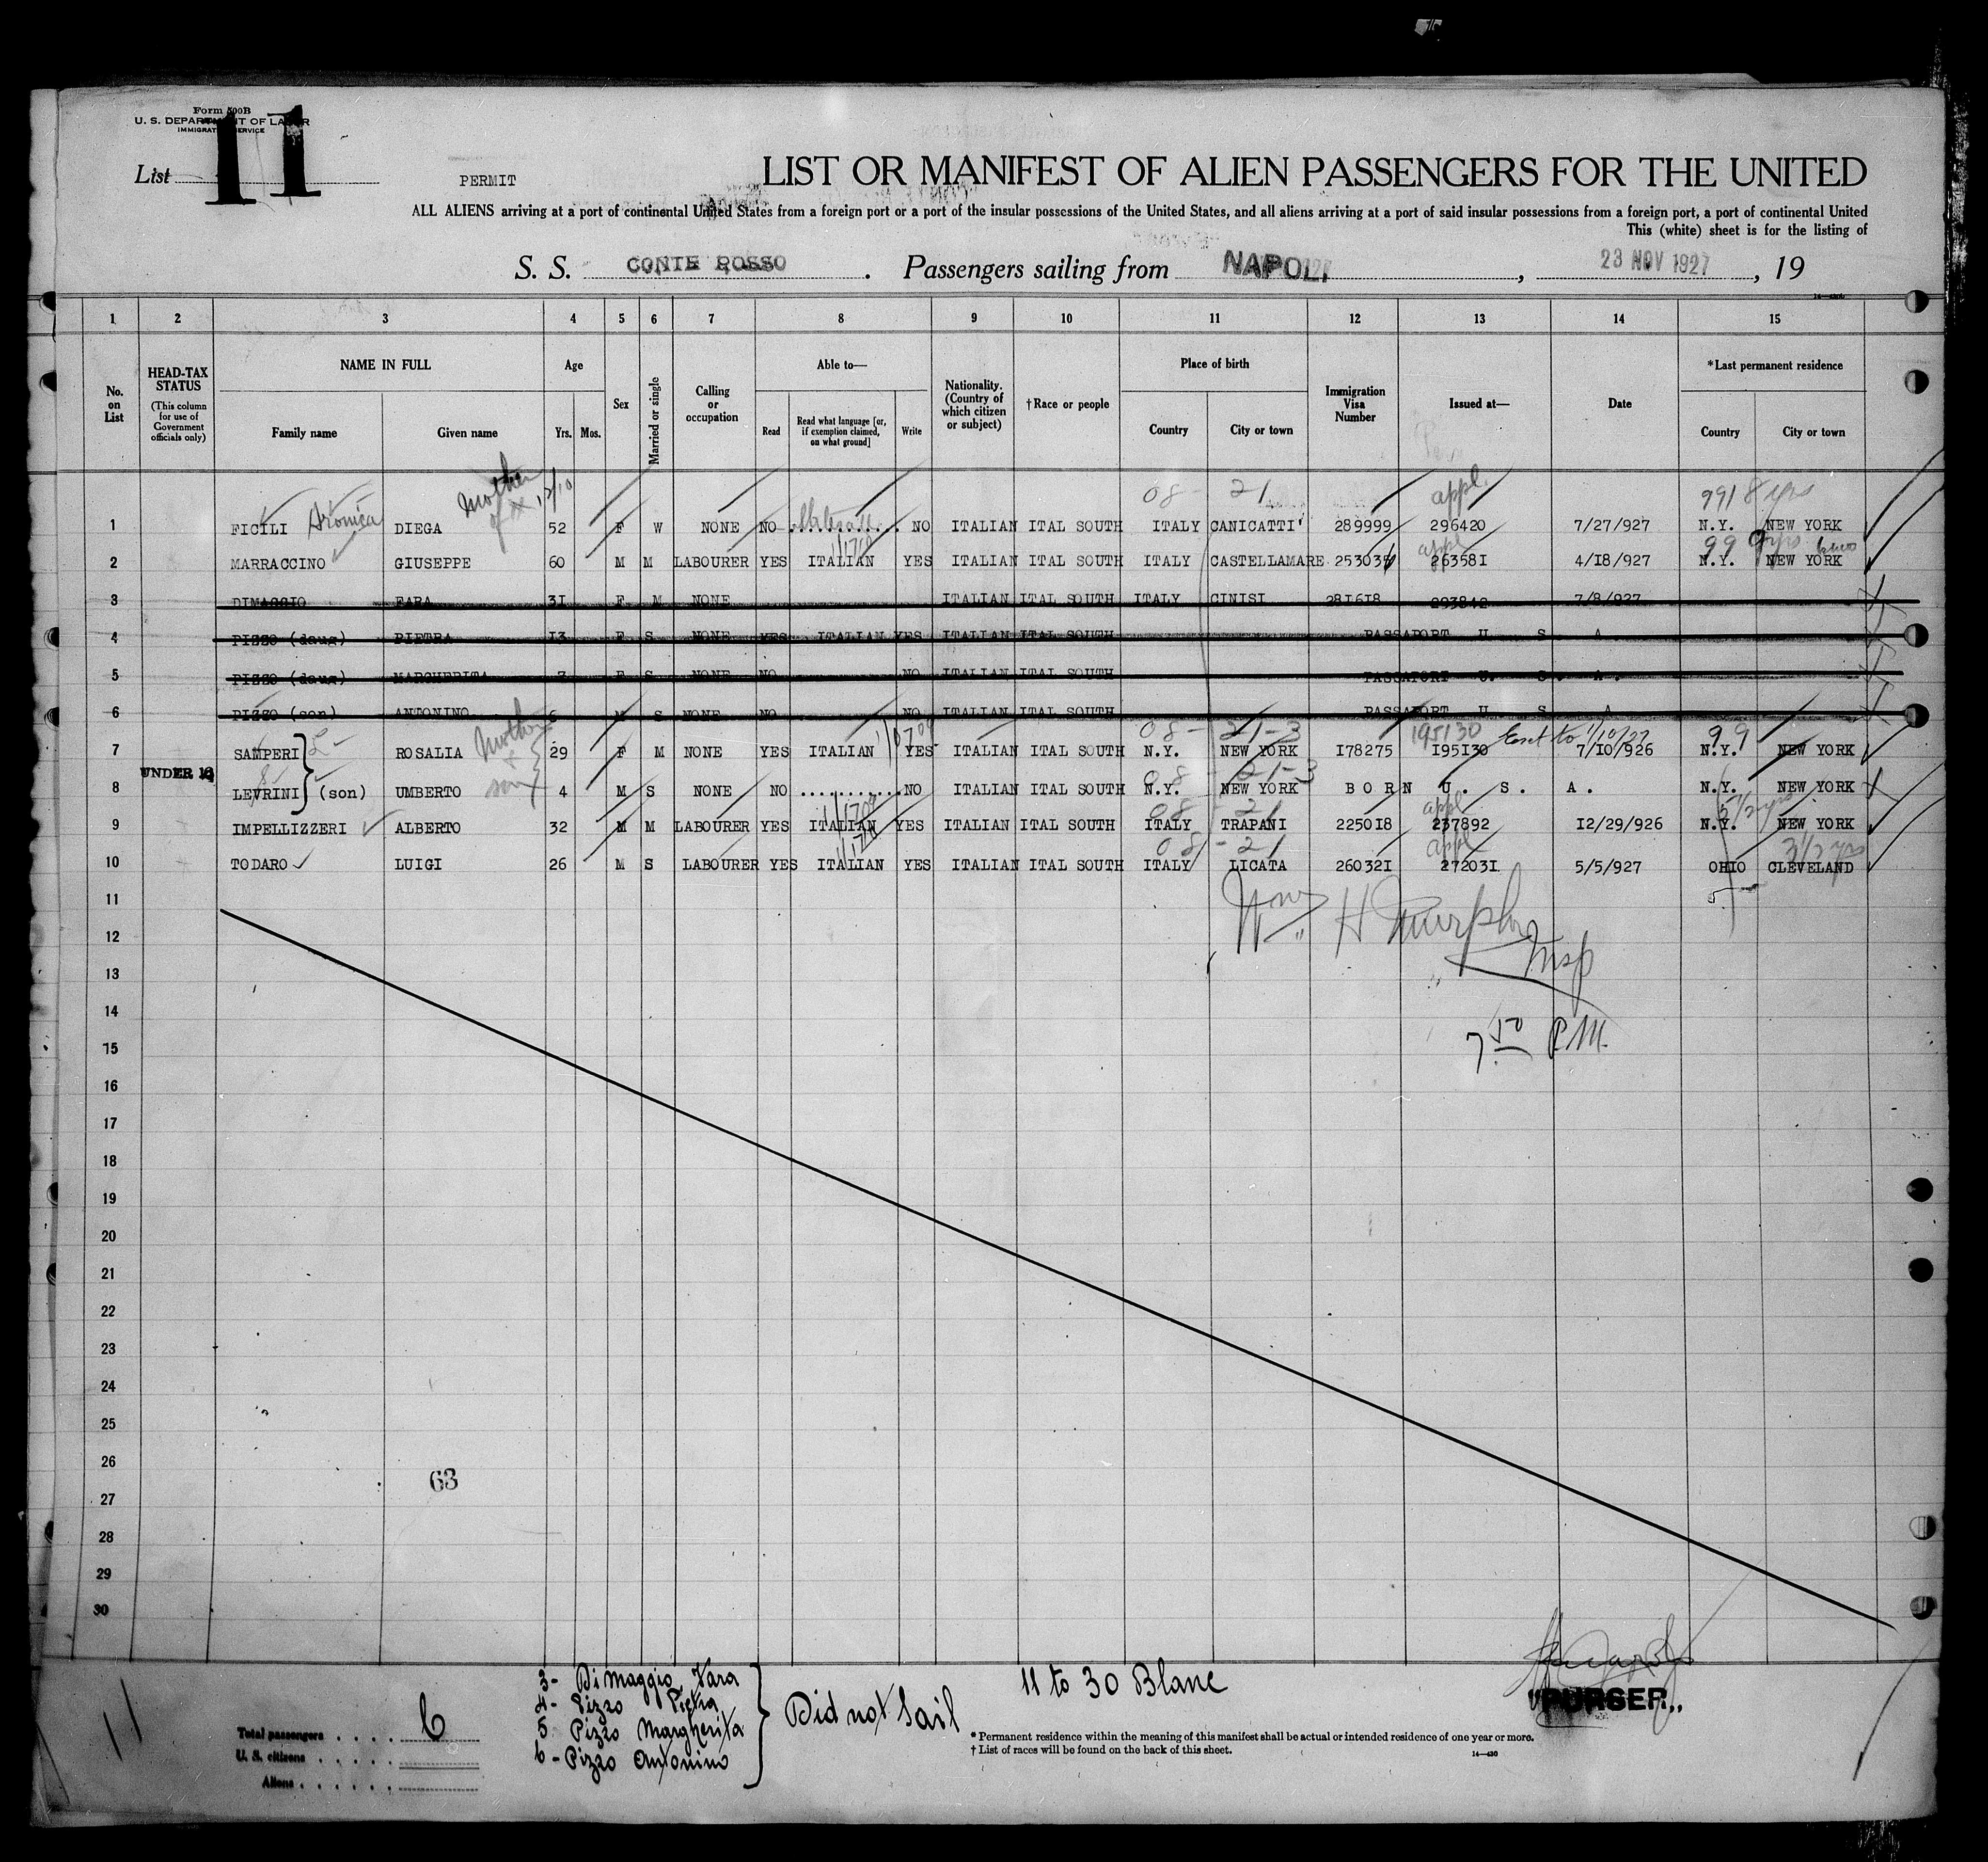 Form 500B
U. S. DEPARTMENT OF LABOR
IMMIGRATION SERVICE
List 11
PERMIT
LIST OR MANIFEST OF ALIEN PASSENGERS FOR THE UNITED
ALL ALIENS arriving at a port of continental United States from a foreign port or a port of the insular possessions of the United States, and all aliens arriving at a port of said insular possessions from a foreign port, a port of continental United
This (white) sheet is for the listing of
S. S. CONTE ROSSO . Passengers sailing from NAPOLI , 23 NOV 1927 , 19
1 2 3 4 5 6 7 8 9 10 11 12 13 14 15
No. on List
HEAD-TAX STATUS
(This column for use of Government officials only)
NAME IN FULL
Family name Given name
Age
Yrs. Mos.
Sex
Married or single
Calling or occupation
Able to—
Read
Read what language [or, if exemption claimed, on what ground]
Write
Nationality. (Country of which citizen or subject)
†Race or people
Place of birth
Country City or town
Immigration Visa Number
Issued at—
Date
*Last permanent residence
Country City or town
Mother of
08 - 21 appl. 991 8 yrs
1 FICILI Aronica DIEGA 52 F W NONE NO NO ITALIAN ITAL SOUTH ITALY CANICATTI' 289999 296420 7/27/927 N.Y. NEW YORK
appl 99 9 yrs
2 MARRACCINO GIUSEPPE 60 M M LABOURER YES ITALIAN YES ITALIAN ITAL SOUTH ITALY CASTELLAMARE 253034 263581 4/18/927 N.Y. NEW YORK
3 DIMAGGIO FARA 31 F M NONE ITALIAN ITAL SOUTH ITALY CINISI 281618 293842 7/8/927
4 PIZZO (daug) PIETRA 13 F S NONE YES ITALIAN YES ITALIAN ITAL SOUTH PASSAPORT U S A
5 PIZZO (daug) MARGHERITA 7 F S NONE NO NO ITALIAN ITAL SOUTH PASSAPORT U. S. A.
6 PIZZO (son) ANTONINO 6 M S NONE NO NO ITALIAN ITAL SOUTH PASSAPORT U S A
08 - 21-3 195130 Ext to 1/10/27 99
7 SAMPERI ROSALIA Mother & son 29 F M NONE YES ITALIAN YES ITALIAN ITAL SOUTH N.Y. NEW YORK 178275 195130 7/10/926 N.Y. NEW YORK
UNDER 16
08 - 21-3
8 LEVRINI (son) UMBERTO 4 M S NONE NO NO ITALIAN ITAL SOUTH N.Y. NEW YORK BORN U. S. A. N.Y. NEW YORK
08 - 21 appl
9 IMPELLIZZERI ALBERTO 32 M M LABOURER YES ITALIAN YES ITALIAN ITAL SOUTH ITALY TRAPANI 225018 237892 12/29/926 N.Y. NEW YORK
08 - 21 appl 3 1/2 yrs
10 TODARO LUIGI 26 M S LABOURER YES ITALIAN YES ITALIAN ITAL SOUTH ITALY LICATA 260321 272031 5/5/927 OHIO CLEVELAND
11
Wm. H Murphy
12
Insp
13
14
7 50 P.M.
15
16
17
18
19
20
21
22
23
24
25
26
63
27
28
29
30
3- Di Maggio Fara
4- Pizzo Pietra
5 Pizzo Margherita
6- Pizzo Antonino
Did not Sail
11 to 30 Blanc
"PURSER"
11
Total passengers . . . . 6
U. S. citizens . . . . .
Aliens . . . . . .
* Permanent residence within the meaning of this manifest shall be actual or intended residence of one year or more.
† List of races will be found on the back of this sheet.
14—430